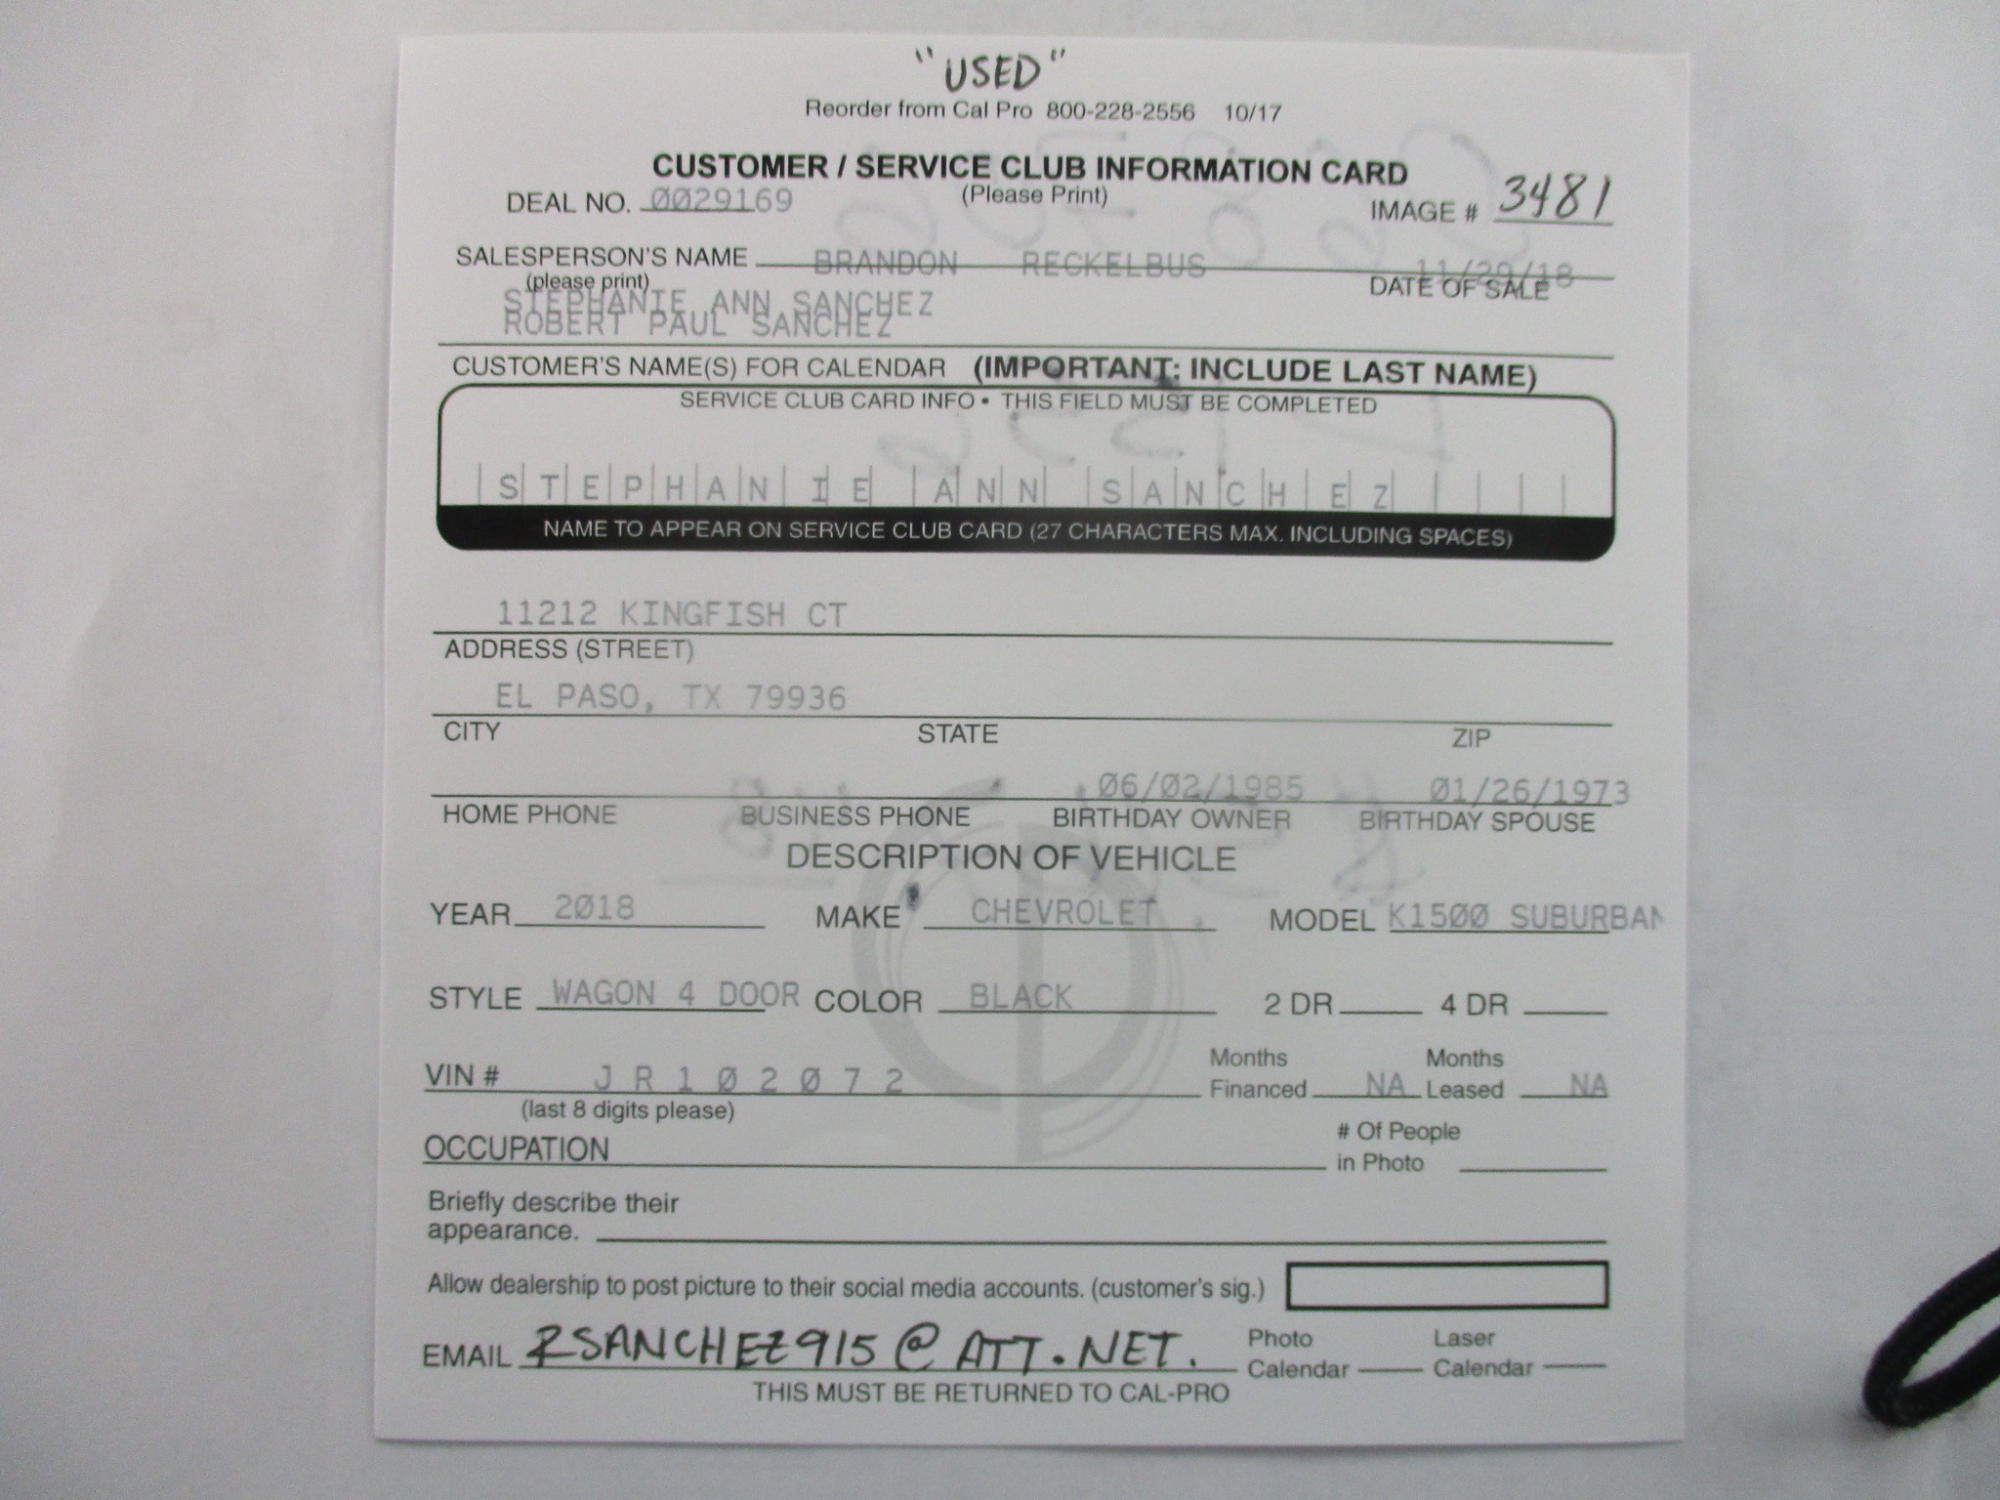 "USED"
Reorder from Cal Pro 800-228-2556 10/17
CUSTOMER / SERVICE CLUB INFORMATION CARD
DEAL NO. 0029169 (Please Print) IMAGE # 3481
SALESPERSON'S NAME BRANDON RECKELBUS 11/29/18
(please print) DATE OF SALE
STEPHANIE ANN SANCHEZ
ROBERT PAUL SANCHEZ
CUSTOMER'S NAME(S) FOR CALENDAR (IMPORTANT: INCLUDE LAST NAME)
SERVICE CLUB CARD INFO • THIS FIELD MUST BE COMPLETED
STEPHANIE ANN SANCHEZ
NAME TO APPEAR ON SERVICE CLUB CARD (27 CHARACTERS MAX. INCLUDING SPACES)
11212 KINGFISH CT
ADDRESS (STREET)
EL PASO, TX 79936
CITY STATE ZIP
06/02/1985 01/26/1973
HOME PHONE BUSINESS PHONE BIRTHDAY OWNER BIRTHDAY SPOUSE
DESCRIPTION OF VEHICLE
YEAR 2018 MAKE CHEVROLET MODEL K1500 SUBURBAN
STYLE WAGON 4 DOOR COLOR BLACK 2 DR 4 DR
VIN # J R 1 0 2 0 7 2 Months Financed NA Months Leased NA
(last 8 digits please)
OCCUPATION # Of People in Photo
Briefly describe their
appearance.
Allow dealership to post picture to their social media accounts. (customer's sig.)
EMAIL RSANCHEZ915@ATT.NET. Photo Calendar Laser Calendar
THIS MUST BE RETURNED TO CAL-PRO